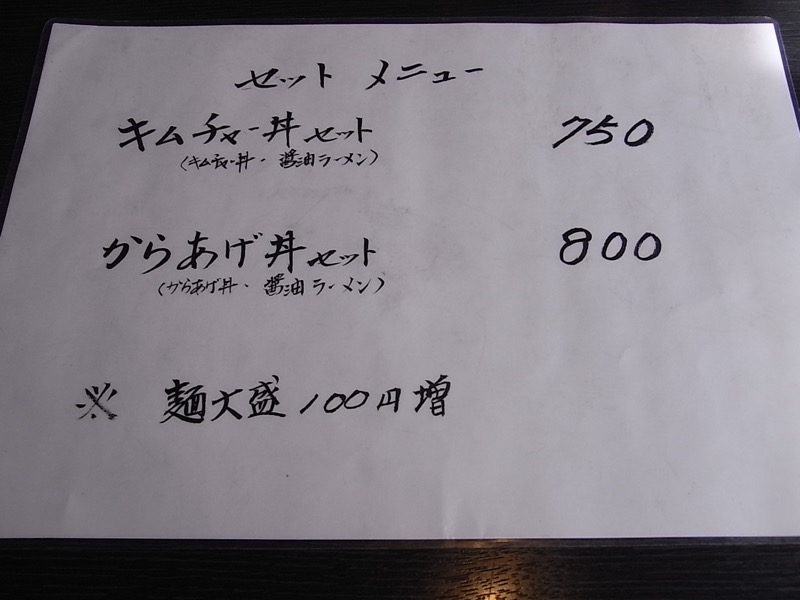 セット メニュー
キムチャー丼セット 750
(キムチャー丼・醤油ラーメン)
からあげ丼セット 800
(からあげ丼・醤油ラーメン)
※ 麺大盛100円増